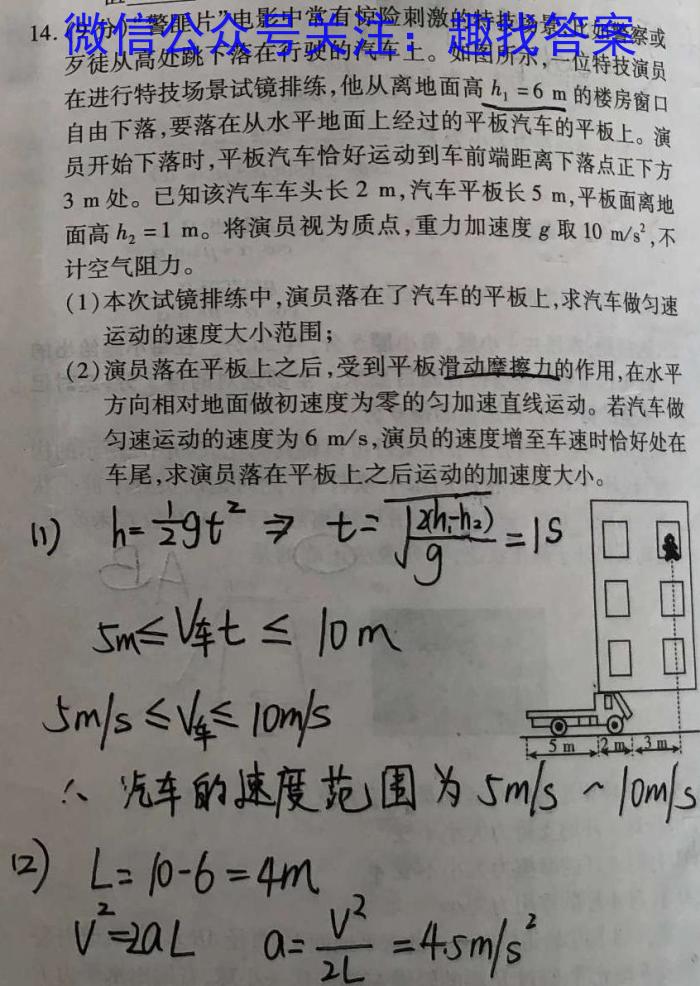 14.
微信公众号关注：趣找答案
“警匪片”电影中常有惊险刺激的特技场景,比如警察或
歹徒从高处跳下落在行驶的汽车上。如图所示,一位特技演员
在进行特技场景试镜排练,他从离地面高 h₁ =6 m 的楼房窗口
自由下落,要落在从水平地面上经过的平板汽车的平板上。演
员开始下落时,平板汽车恰好运动到车前端距离下落点正下方
3 m 处。已知该汽车车头长 2 m,汽车平板长 5 m,平板面离地
面高 h₂ =1 m。将演员视为质点,重力加速度 g 取 10 m/s²,不
计空气阻力。
(1)本次试镜排练中,演员落在了汽车的平板上,求汽车做匀速
运动的速度大小范围;
(2)演员落在平板上之后,受到平板滑动摩擦力的作用,在水平
方向相对地面做初速度为零的匀加速直线运动。若汽车做
匀速运动的速度为 6 m/s,演员的速度增至车速时恰好处在
车尾,求演员落在平板上之后运动的加速度大小。
(1) h=½gt² ⇒ t=√(2(h₁-h₂)/g)=1S
5m≤V车t≤10m
5m/s≤V车≤10m/s
5 m 2 m 3 m
∴ 汽车的速度范围为 5m/s ~ 10m/s
(2) L=10-6=4m
V²=2aL a=V²/2L=4.5m/s²